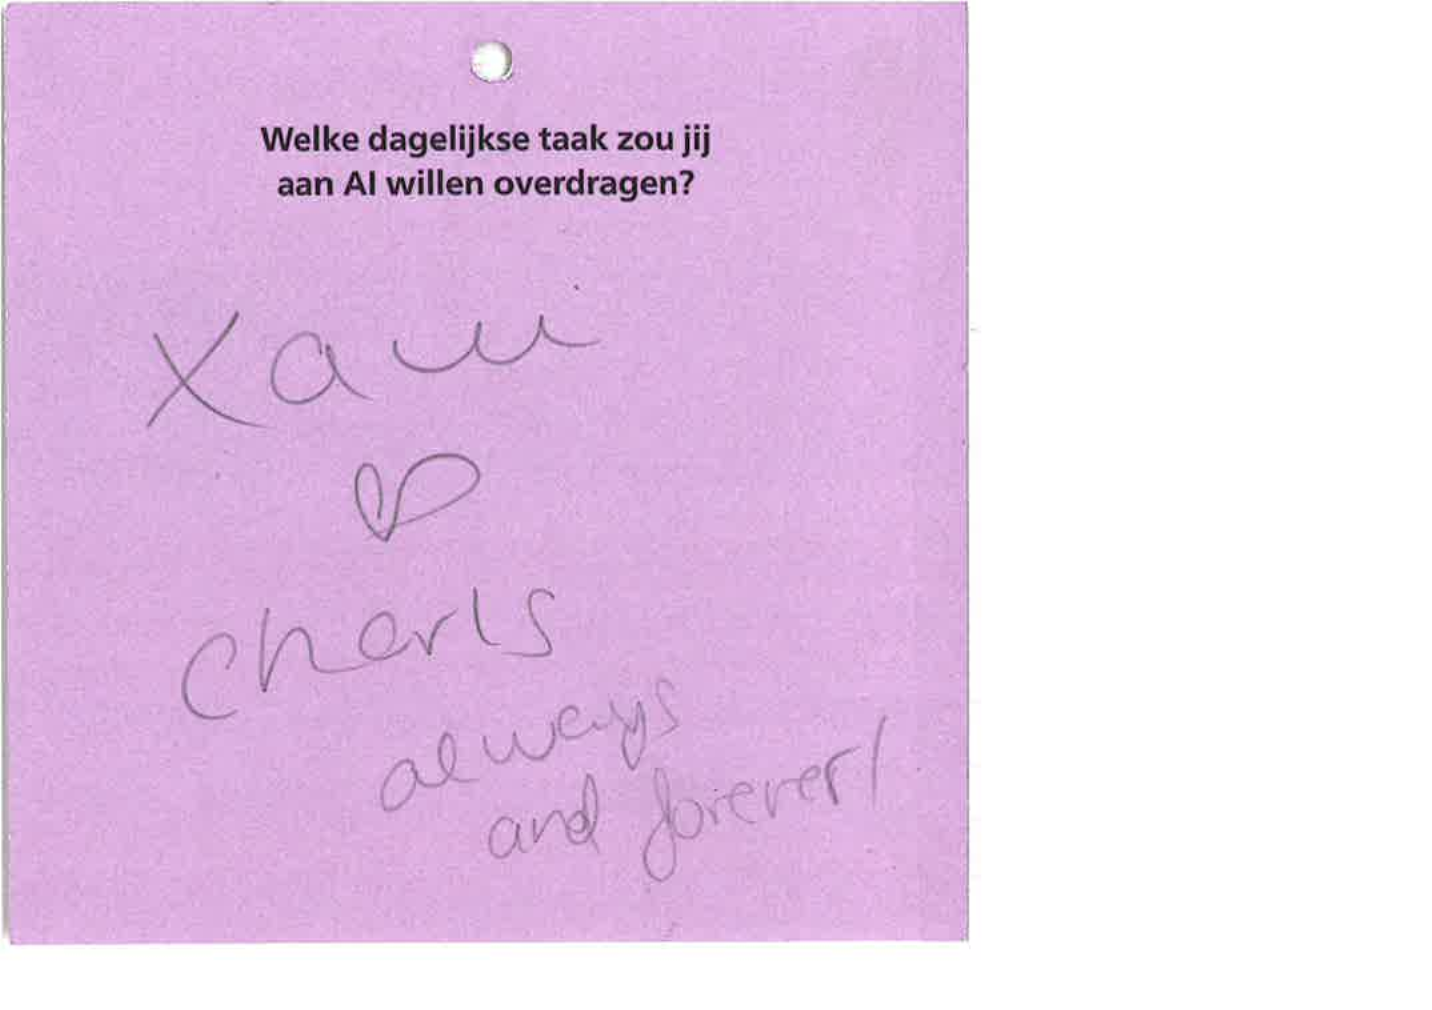 Welke dagelijkse taak zou jij
aan AI willen overdragen?
Xavi
♡
Charls
always
and forever!